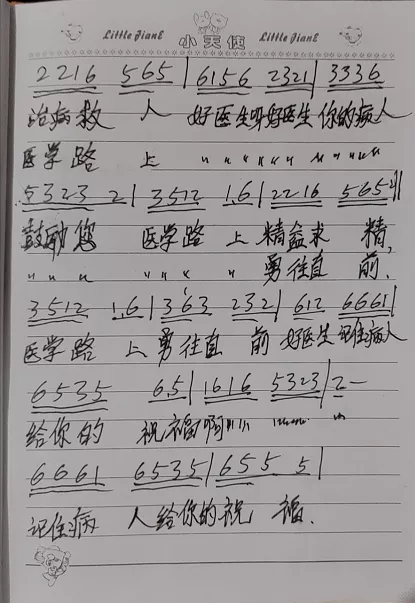 Little JianE 小天使 Little JianE
2216 565 | 6156 2321 | 3336
治病救 人 好医生呀好医生 你的病人
医学路 上 〃 〃 〃 〃 〃 〃 〃 〃 〃 〃
5323 2 | 3512 1.6 | 2216 565 |
鼓励您 医学路 上 精益求 精,
〃 〃 〃 〃 〃 〃 〃 勇往直 前.
3512 1.6 | 363 232 | 612 6661 |
医学路 上 勇往直 前 好医生 记住病人
6535 6.5 | 1616 5323 | 2-
给你的 祝福啊 〃 〃 〃
6661 6535 | 655 5 |
记住病 人给你的祝 福.